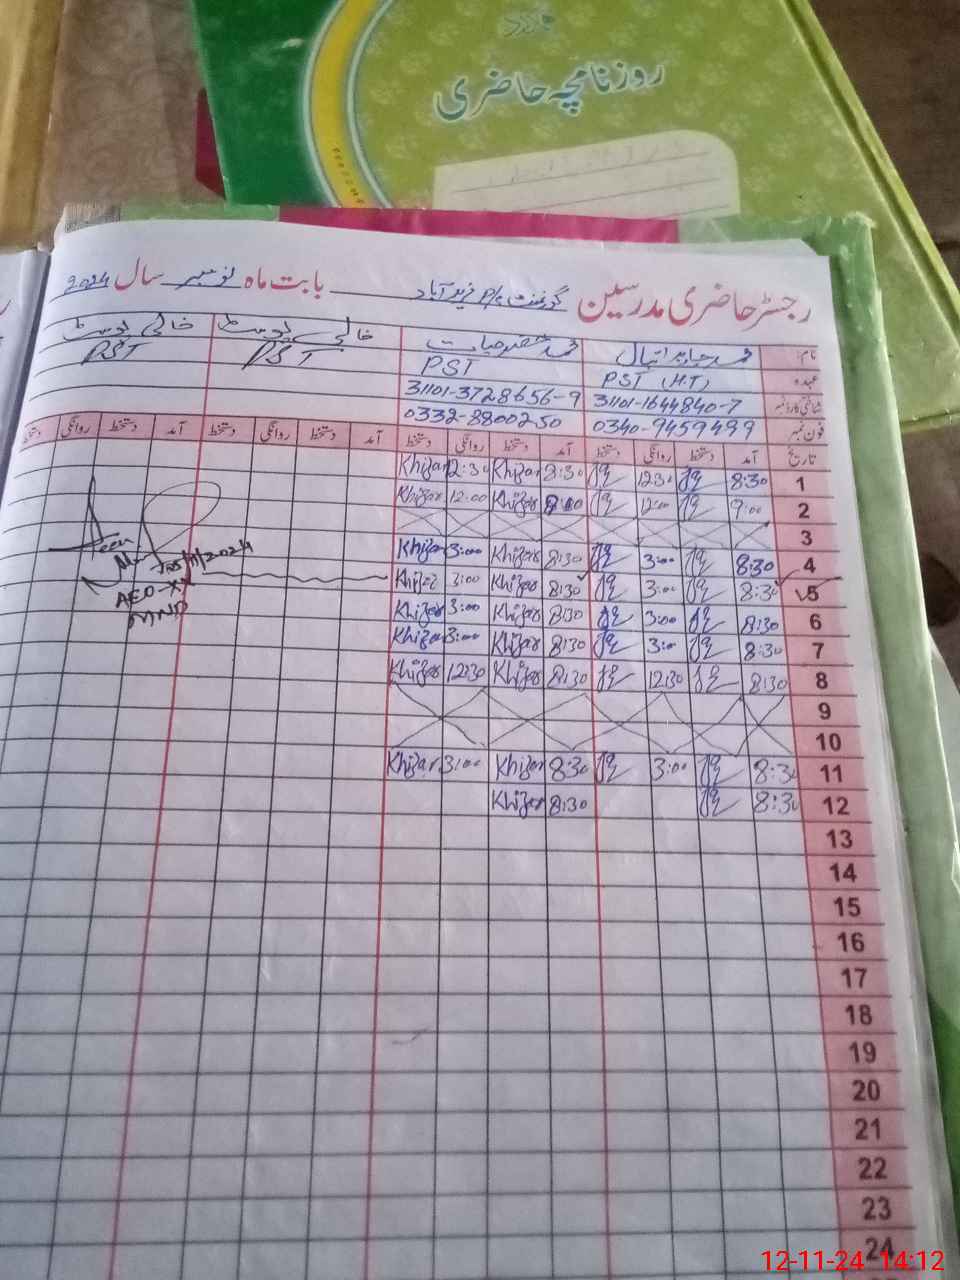 روزنامچہ حاضری
رجسٹر حاضری مدرسین گورنمنٹ P/S فرید آباد بابت ماہ نومبر سال 2024
نام محمد جابر اقبال محمد خضر حیات خالی پوسٹ خالی پوسٹ
عہدہ PST (H.T) PST PST PST
شناختی کارڈ نمبر 31101-1644840-7 31101-3728656-9
فون نمبر 0340-9459499 0332-8800250
تاریخ آمد دستخط روانگی دستخط آمد دستخط روانگی دستخط آمد دستخط روانگی دستخط آمد دستخط روانگی دستخط
1 8:30 12:30 8:30 Khizar 12:30 Khizar
2 9:00 12:00 Khizar 12:00 Khizar
3
4 8:30 3:00 8:30 Khizar 3:00 Khizar
5 8:30 3:00 8:30 Khizar 3:00 Khizar
6 8:30 3:00 8:30 Khizar 3:00 Khizar
7 8:30 3:00 8:30 Khizar 3:00 Khizar
8 8:30 12:30 8:30 Khizar 12:30 Khizar
9
10
11 8:30 3:00 8:30 Khizar 3:00 Khizar
12 8:30 8:30 Khizar
13
14
15
16
17
18
19
20
21
22
23
24
Seen
05/11/2024
AEO-X
MND
12-11-24 14:12